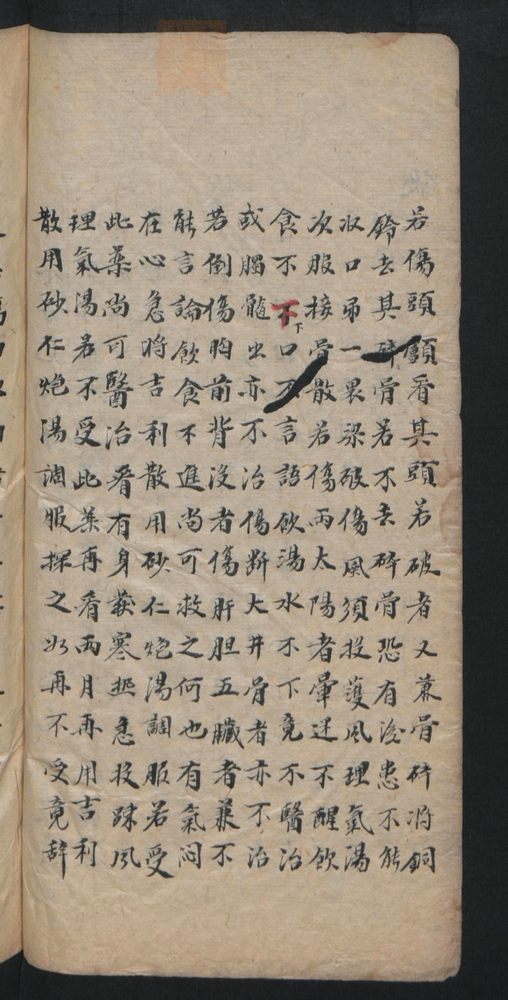 若傷頭顱看其頭若破者又兼骨碎將銅
鈴去其碎骨若不去碎骨恐有後患不能
收口吊一裹梁破傷風須投護風理氣湯
次服接骨散若傷兩太陽者暈迷不醒飲
食不下口不言語飲湯水不下竟不醫治
或腦髓出亦不治傷斷大井骨者亦不治
若倒傷胸前背沒者傷肝胆五臟者兼不
能言論飲食不進尚可救之何也有氣悶
在心急將吉利散用砂仁炮湯調服若受
此藥尚可醫治看有身發寒熱急投踈風
理氣湯若不受此藥再看兩月再用吉利
散用砂仁炮湯調服探之如再不受竟辞